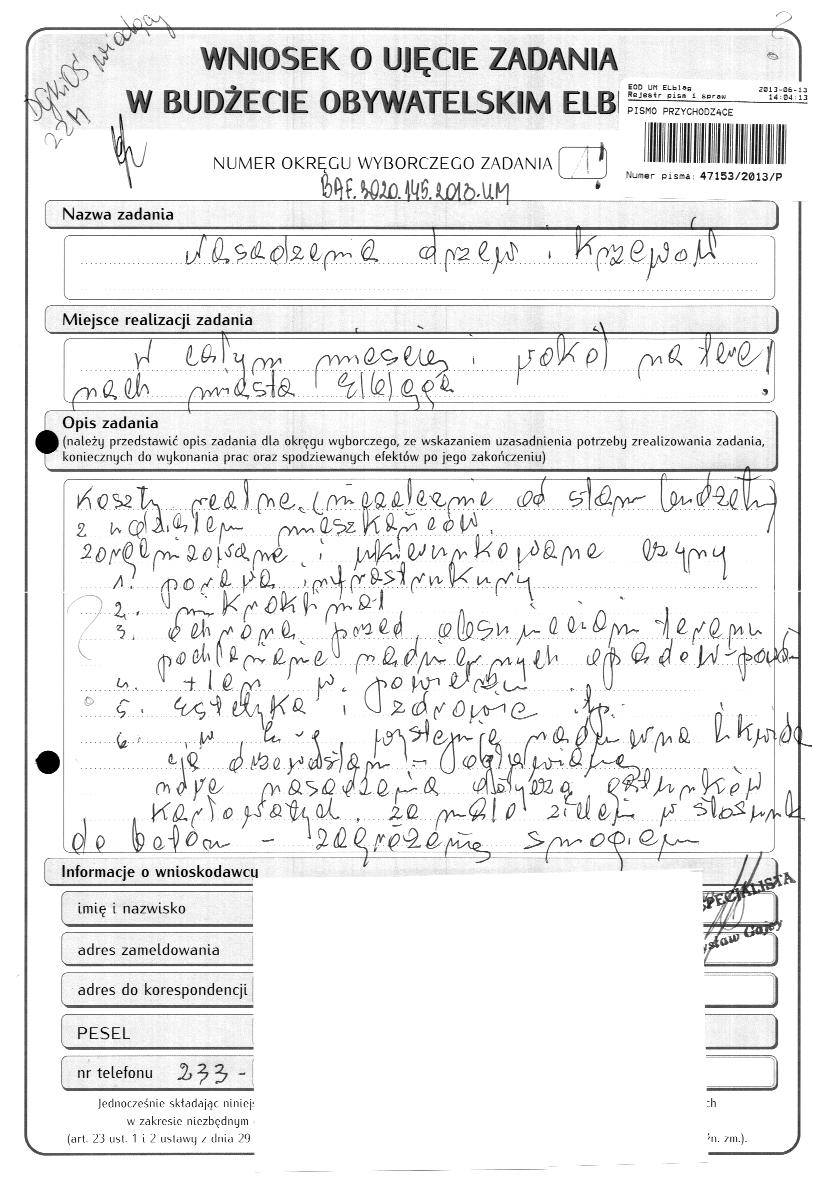 DGKiOŚ wiodący
WNIOSEK O UJĘCIE ZADANIA
W BUDŻECIE OBYWATELSKIM ELB
EOD UM Elbląg 2013-06-13
Rejestr pism i spraw 14:04:13
PISMO PRZYCHODZĄCE
Numer pisma: 47153/2013/P
NUMER OKRĘGU WYBORCZEGO ZADANIA 1!
BAF.3020.145.2013.UM
Nazwa zadania
Nasadzenia drzew i krzewów
Miejsce realizacji zadania
W całym mieście i wokół na tere
nach miasta Elbląga !
Opis zadania
(należy przedstawić opis zadania dla okręgu wyborczego, ze wskazaniem uzasadnienia potrzeby zrealizowania zadania,
koniecznych do wykonania prac oraz spodziewanych efektów po jego zakończeniu)
Koszty realne (niezależnie od stanu budżetu)
z udziałem mieszkańców.
zorganizowane i ukierunkowane czyny
1. porawa infrastrukury
2. mikroklimat
3. ochrona przed obsunięciem terenu
pochłanianie nadmiernych opadów
4. tlen w powietrzu
5. Estetyka i zdrowie itp.
6. w nadmierna likwida
cja drzewostanu -
nowe nasadzenia dotyczą gatunków
karłowatych. za mało zieleni w stosunk
do betonu - zagrożenie smogiem
Informacje o wnioskodawcy
imię i nazwisko
SPECJALISTA
adres zameldowania
adres do korespondencji
PESEL
nr telefonu 233 -
Jednocześnie składając niniej ch
w zakresie niezbędnym
(art. 23 ust. 1 i 2 ustawy z dnia 29 zm.).